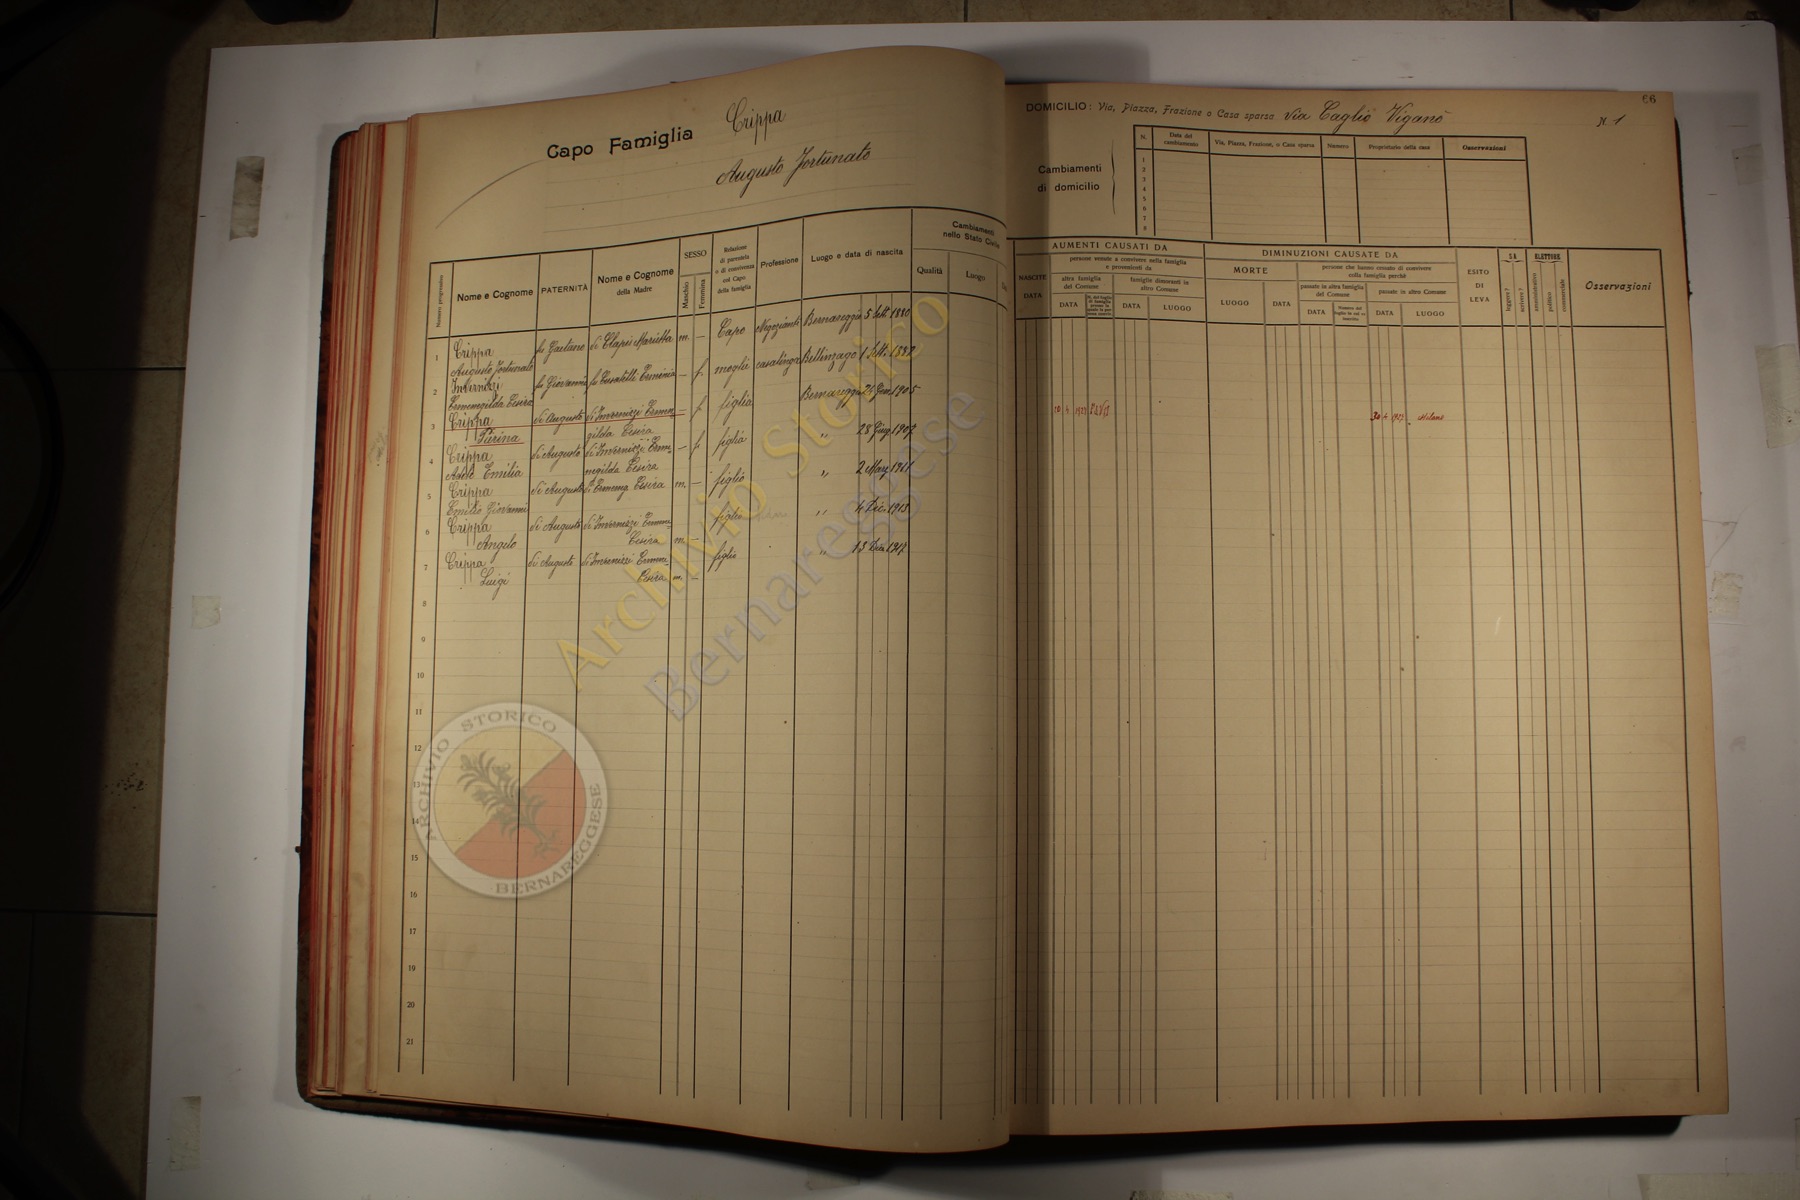 Capo Famiglia Crippa
Augusto Fortunato
66
DOMICILIO: Via, Piazza, Frazione o Casa sparsa Via Caglio Viganò N. 1
Cambiamenti
di domicilio
N. Data del cambiamento Via, Piazza, Frazione, o Casa sparsa Numero Proprietario della casa Osservazioni
1
2
3
4
5
6
7
8
Numero progressivo
Nome e Cognome
PATERNITÀ
Nome e Cognome
della Madre
SESSO
Maschio
Femmina
Relazione
di parentela
o di convivenza
col Capo
della famiglia
Professione
Luogo e data di nascita
Cambiamenti
nello Stato Civile
Qualità
Luogo
NASCITE
DATA
AUMENTI CAUSATI DA
persone venute a convivere nella famiglia
e provenienti da
altra famiglia
del Comune
DATA
famiglie dimoranti in
altro Comune
DATA
LUOGO
DIMINUZIONI CAUSATE DA
MORTE
LUOGO
DATA
persone che hanno cessato di convivere
colla famiglia perchè
passate in altra famiglia
del Comune
DATA
passate in altro Comune
DATA
LUOGO
ESITO
DI
LEVA
SA
leggere?
scrivere?
ELETTORE
amministrativo
politico
commerciale
Osservazioni
1 Crippa fu Gaetano di Clapis Marietta m. — Capo Negoziante Bernareggio 5 Sett. 1880
Augusto Fortunato
2 Invernizzi fu Giovanni fu Erminia — f. moglie casalinga Bellinzago 1 Sett. 1882
Ermenegilda Cesira
3 Crippa di Augusto di Invernizzi Ermen — f. figlia Bernareggio 1905 10 4 1927 30 4 1927 Milano
Pierina gilda Cesira
4 Crippa di Augusto di Invernizzi Erme- — f. figlia " 28 Giug. 1907
Adele Emilia negilda Cesira
5 Crippa di Augusto di Ermeneg Cesira m. — figlio " 2 1911
Emilio Giovanni
6 Crippa di Augusto di Invernizzi figlio " 4 Dic. 1913
Angelo Cesira m. —
7 Crippa di Augusto di Invernizzi Ermene figlio " 13 Dic. 1917
Luigi Cesira m. —
8
9
10
11
12
13
14
15
16
17
18
19
20
21
Archivio Storico
Bernareggese
ARCHIVIO STORICO
BERNAREGGESE